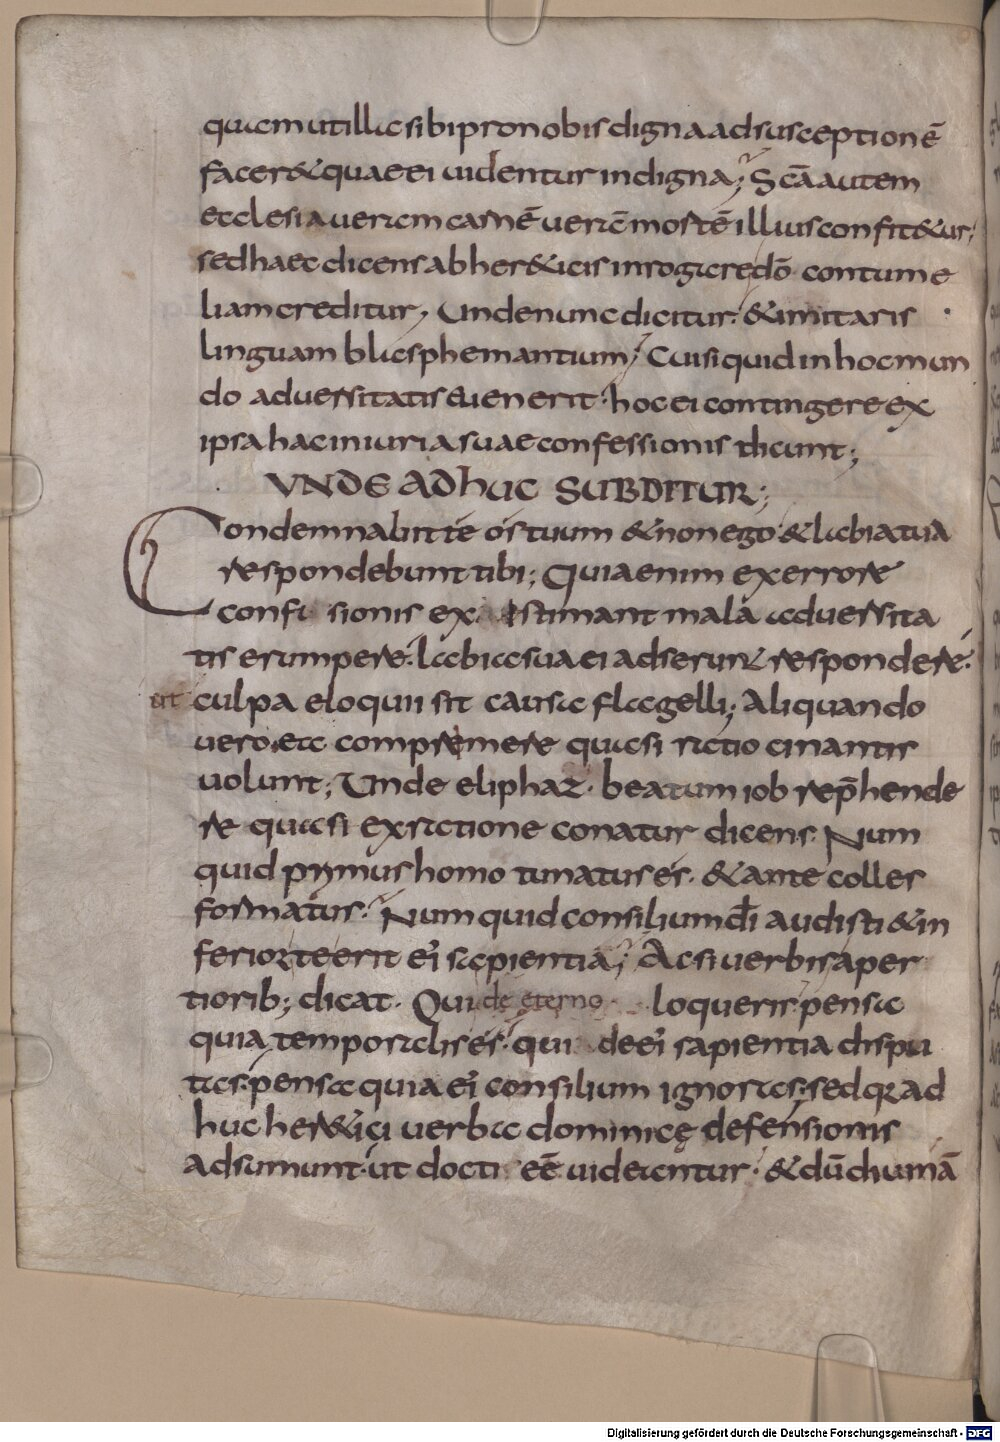 quam ut illa sibi pro nobis digna ad susceptionē
facer& quae ei uidentur indigna; Scā autem
ecclesia ueram carnē uerā mortē illius confit&ur,
sed haec dicens ab her&icis inrogare dō contume
liam creditur, Unde nunc dicitur. &imitaris
linguam blasphemantium; Cui si quid in hoc mun
do aduersitatis euenerit. hoc ei contingere ex
ipsa hac iniuria suae confessionis dicunt;
UNDE ADHUC SUBDITUR;
Condemnabit te os tuum & non ego. & labia tua
respondebunt tibi; Quia enim ex errore
confessionis ex estimant mala aduersita
tis erumpere. labia sua ei adserunt respondere.
ut culpa eloquii sit causa flagelli; Aliquando
uero ea compremere quasi ratiocinantis
uolunt; Unde eliphaz. beatum iob rep̄hende
re quasi ex ratione conatur dicens. Num
quid prymus homo tu natus es. & ante colles
formatus. Numquid consilium dī audisti & in
ferior te erit ei' sapientia; Ac si uerbis aper
tiorib; dicat. Qui de eterno loqueris. pensa
quia temporalis es. qui de ei' sapientia dispu
tas. pensa quia ei' consilium ignoras. sed q ad
huc her&ici uerba dominicę defensionis
adsumunt. ut docti eē uideantur. & dū humā
Digitalisierung gefördert durch die Deutsche Forschungsgemeinschaft - DFG